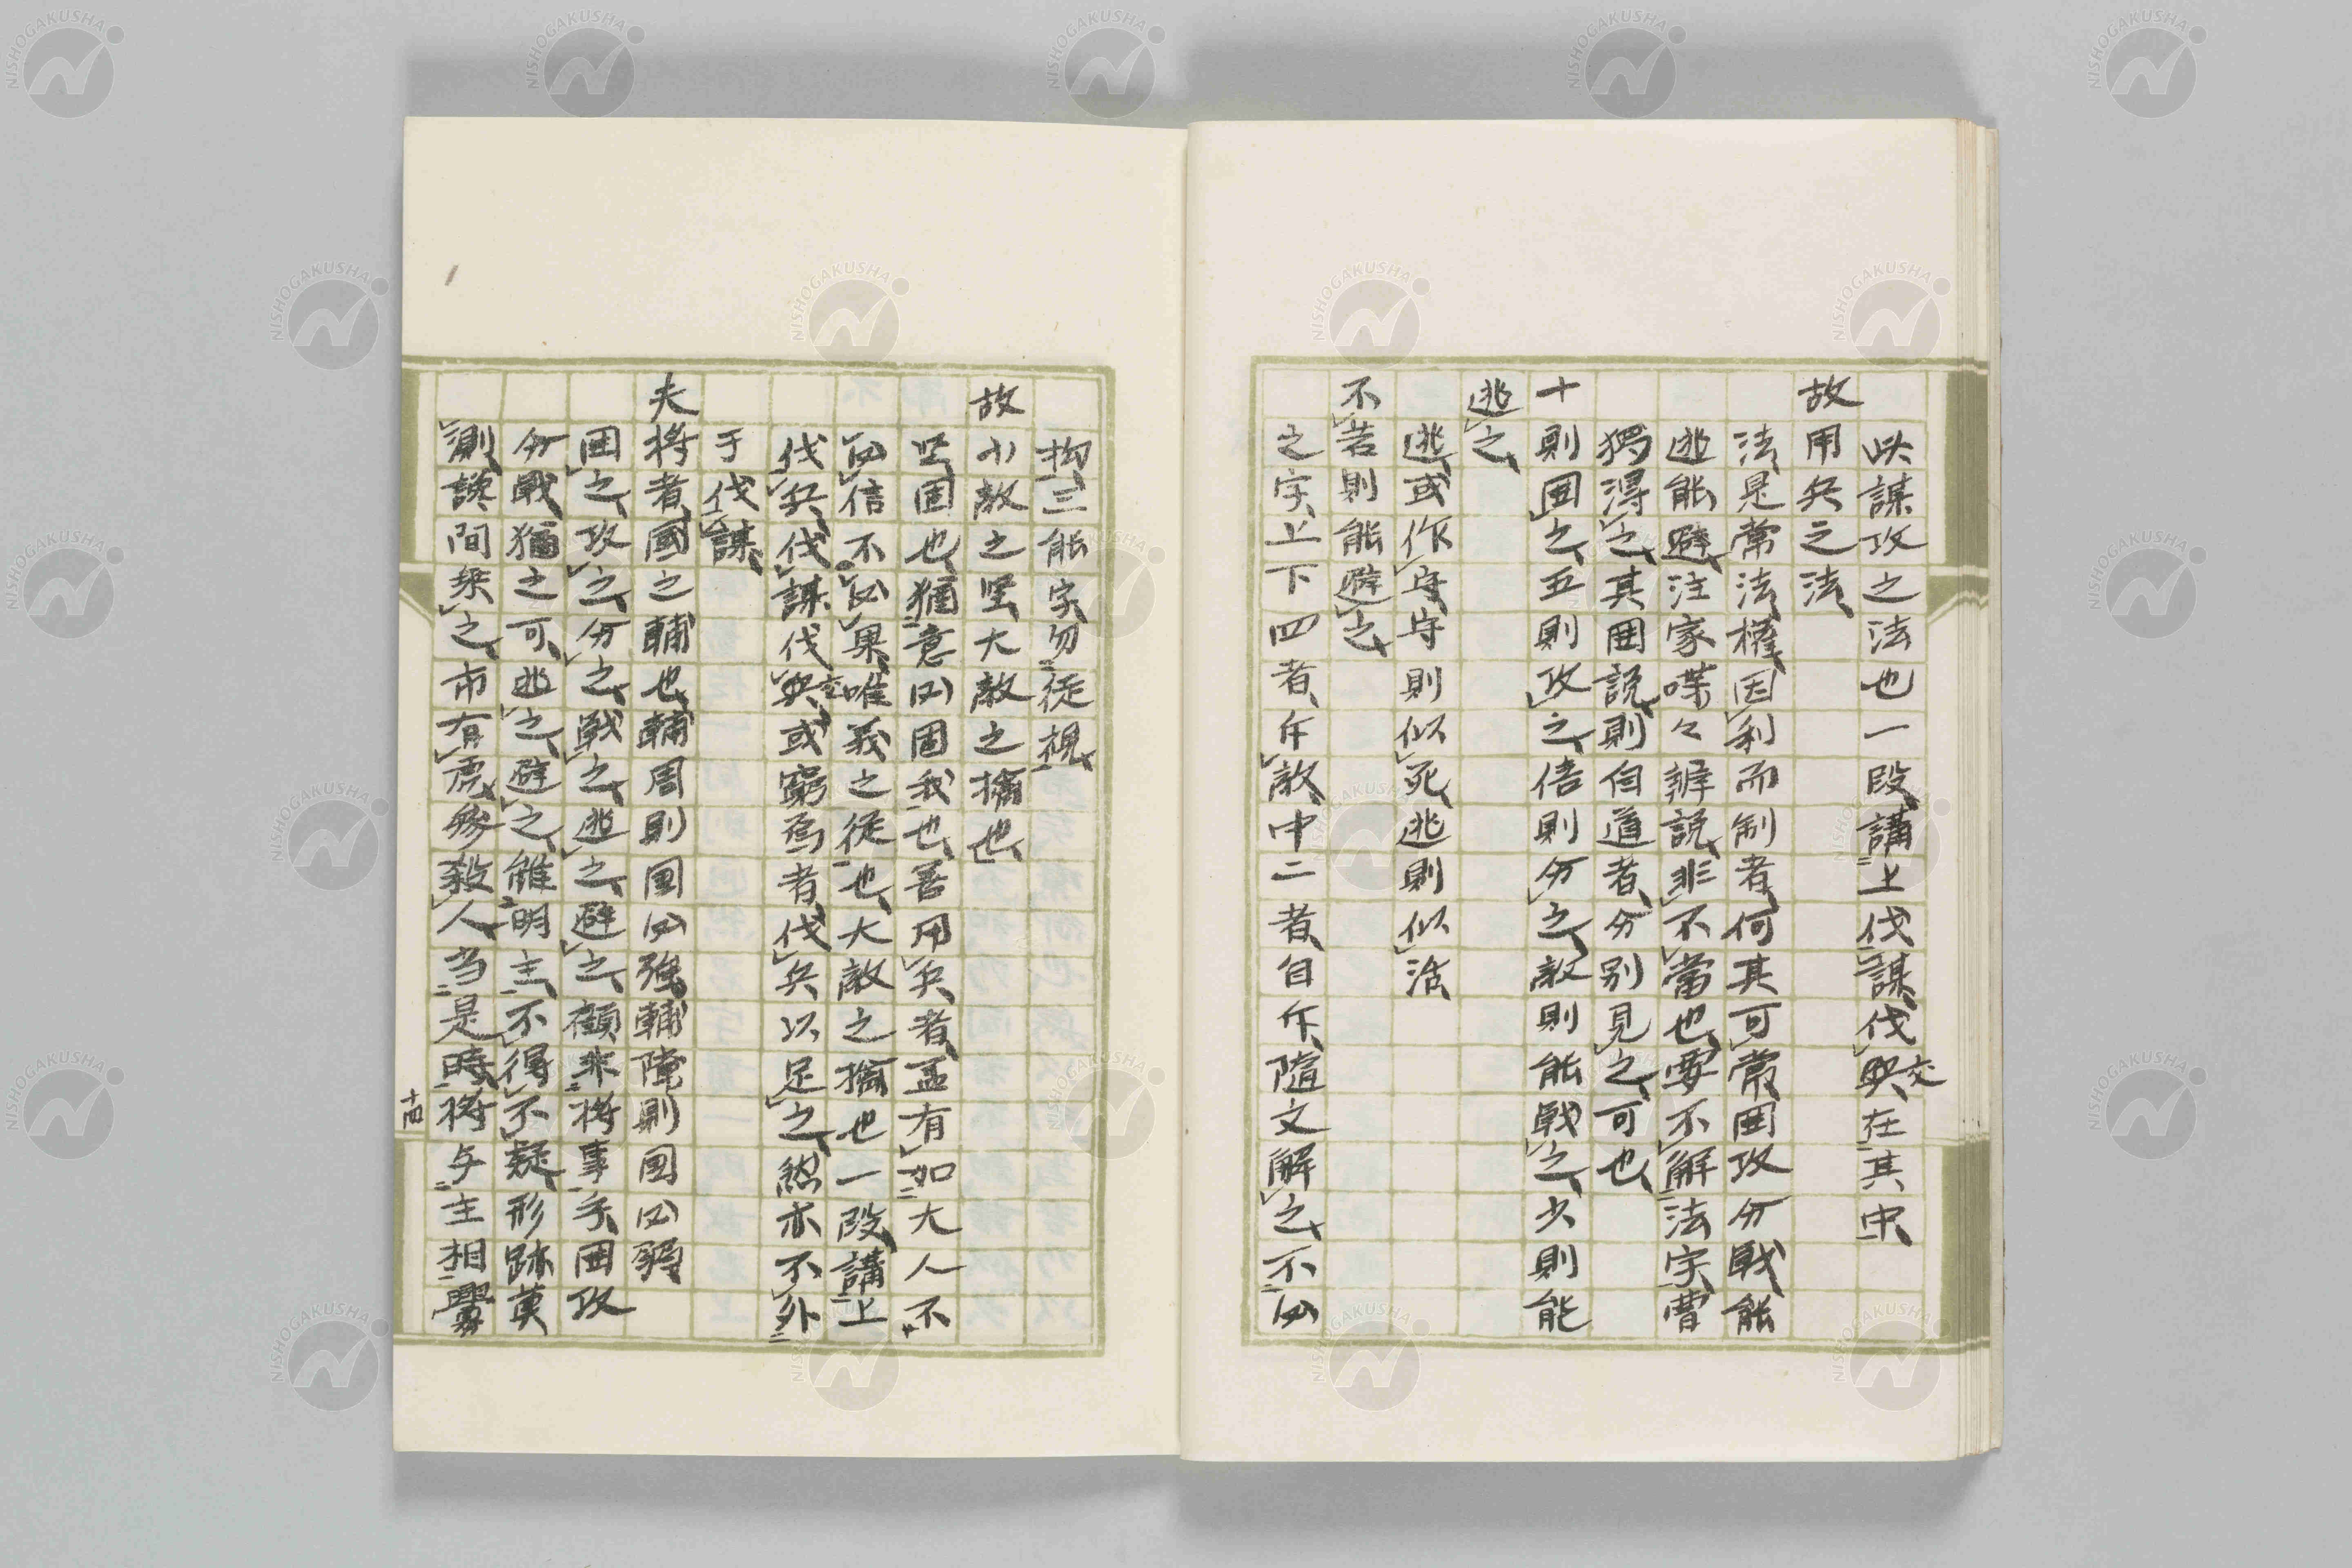 此謀攻之法也一段講上伐謀伐交在其中
故用兵之法
法是常法権因利而制者何其可常囲攻分戦能
逃能避注家喋々辨説非不當也要不解法字曹
獨得之其囲説則自道者分別見之可也
十則囲之五則攻之倍則分之敵則能戦之少則能
逃之
逃或作守守則似死逃則似活
不若則能避之
之字上下四者斥敵中二者自斥隨文解之不必
拘三能字勿徒視
故小敵之堅大敵之擒也
堅固也猶意必固我也善用兵者孟有如大人不
必信不必果唯義之従也大敵之擒也一段講上
伐兵伐謀伐交或窮焉者伐兵以足之然亦不外
于伐謀
夫将者國之輔也輔周則国必強輔隙則国必弱
囲之攻之分之戦之逃之避之顧非将事乎囲攻
分戦猶之可逃之避之雖明主不得不疑形跡莫
測讒間乗之市有虎参殺人当是時将与主相釁
十四
NISHOGAKUSHA